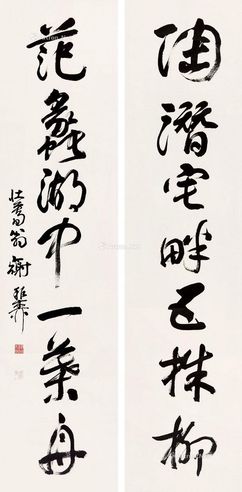 陶潛宅畔五株柳
范蠡湖中一葉舟
壮暮翁謝稚柳